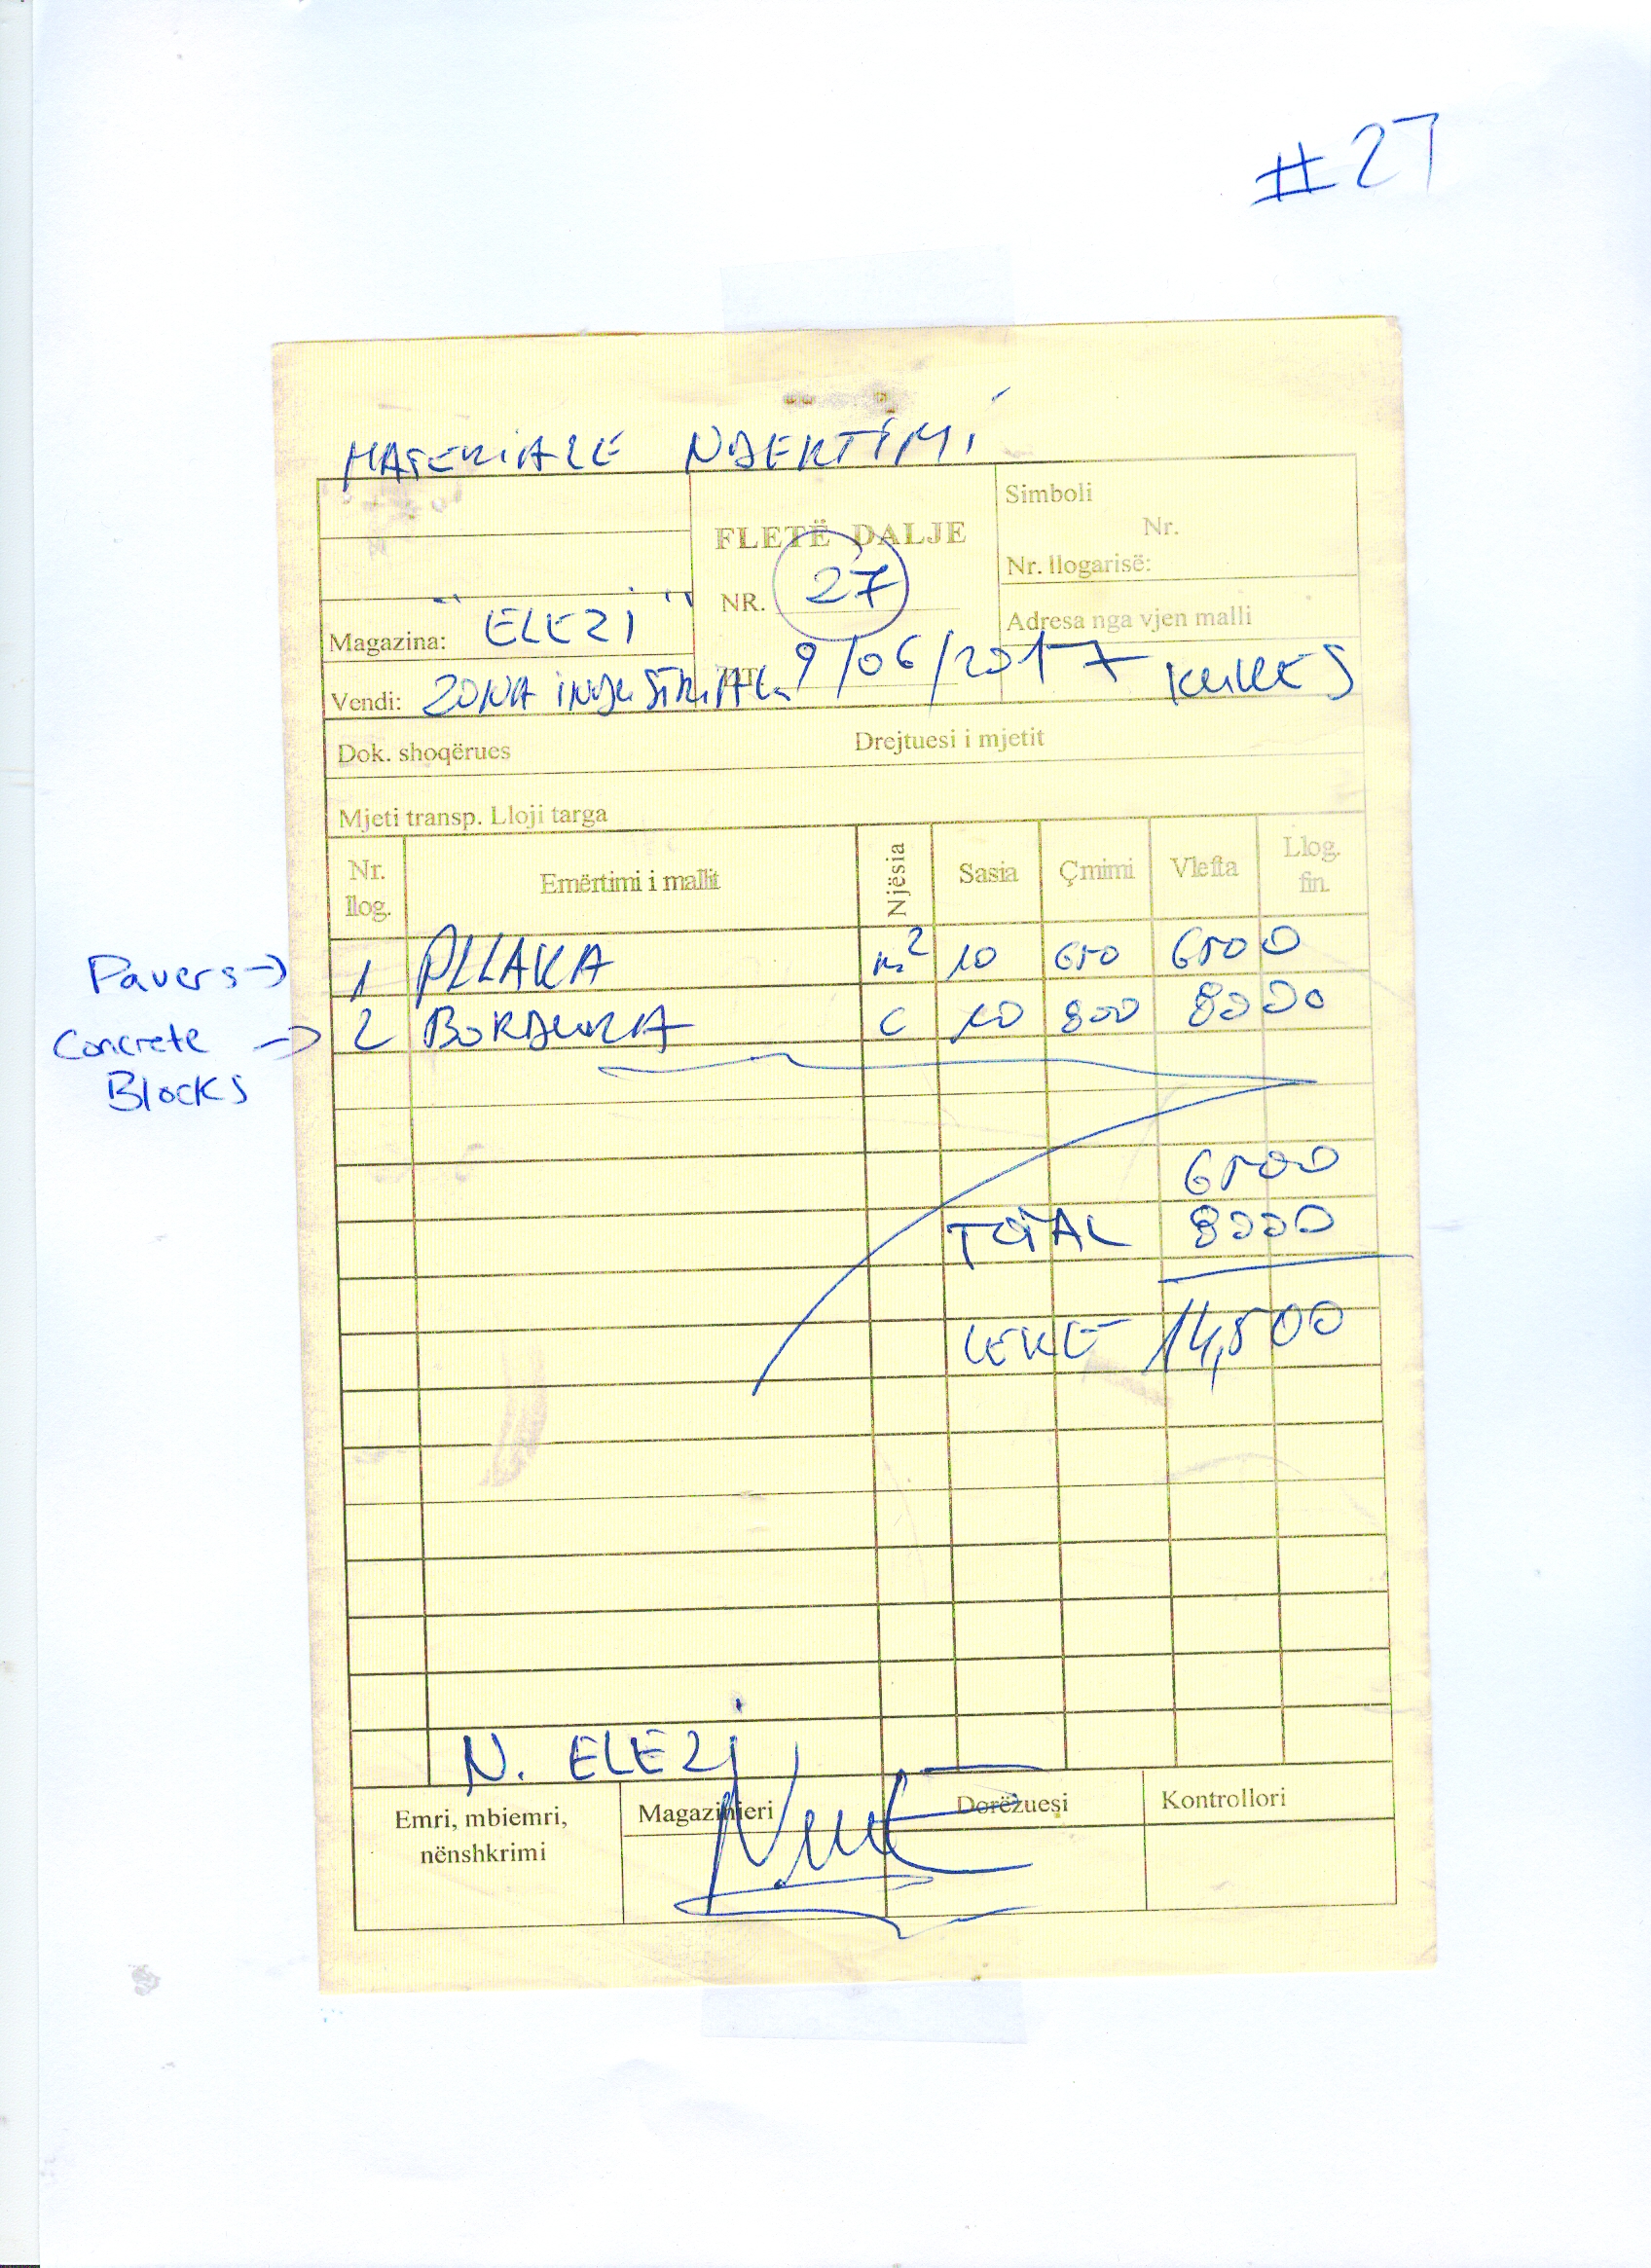 #27
MATERIALE NDERTIMI
FLETË DALJE
Simboli
Nr.
Nr. llogarisë:
NR. 27
Magazina: "ELEZI"
Adresa nga vjen malli
Vendi: ZONA INDUSTRIAL 9/06/2017 KUKES
Dok. shoqërues Drejtuesi i mjetit
Mjeti transp. Lloji targa
Nr. llog. Emërtimi i mallit Njësia Sasia Çmimi Vlefta Llog. fin.
Pavers→ 1 PLLAKA m² 10 650 6500
Concrete Blocks → 2 BORDURA C 10 800 8000
6500
TOTAL 8000
LEKE 14,500
N. ELEZI
Emri, mbiemri, nënshkrimi Magazinieri Dorëzuesi Kontrollori